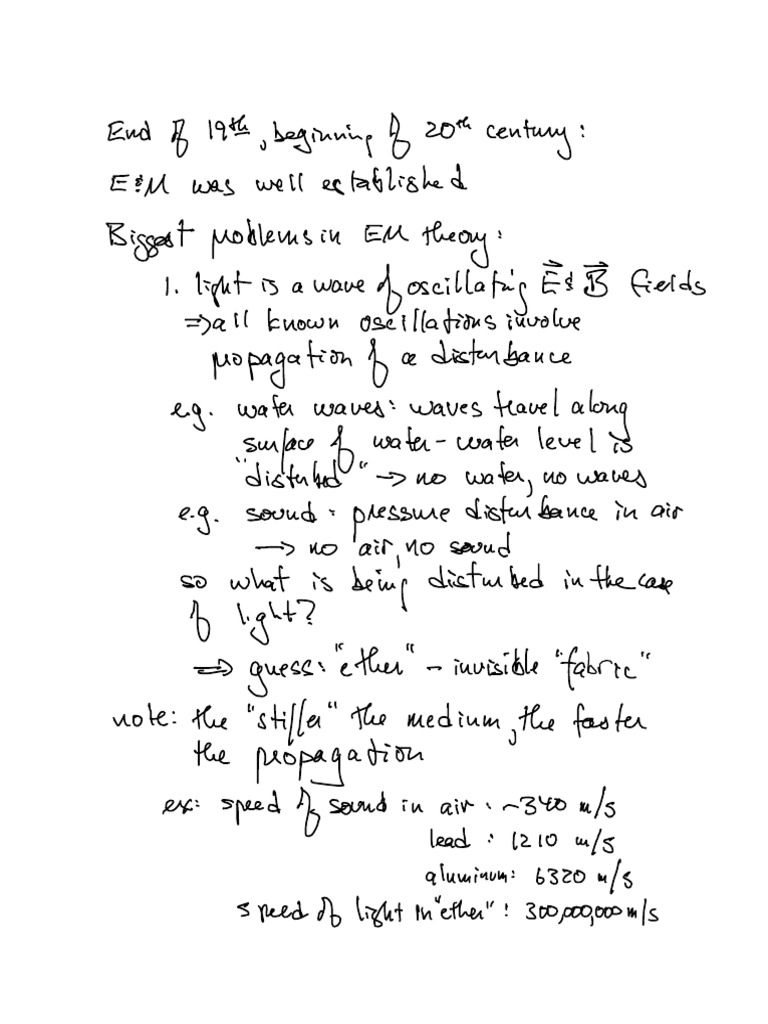 End of 19th, beginning of 20th century:
E&M was well established
Biggest problems in EM theory:
1. light is a wave of oscillating E⃗ & B⃗ fields
⇒ all known oscillations involve
propagation of a disturbance
e.g. water waves: waves travel along
surface of water - water level is
"disturbed" → no water, no waves
e.g. sound: pressure disturbance in air
→ no air, no sound
so what is being disturbed in the case
of light?
⇒ guess: "ether" - invisible "fabric"
note: the "stiffer" the medium, the faster
the propagation
ex: speed of sound in air: ~340 m/s
lead: 1210 m/s
aluminum: 6320 m/s
speed of light in "ether": 300,000,000 m/s